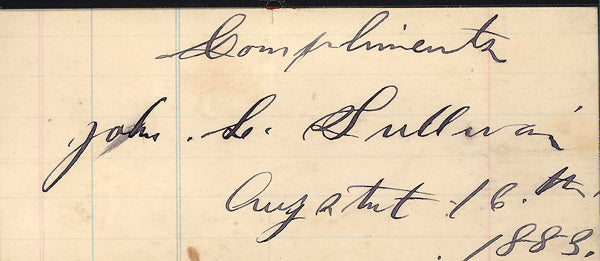 Compliments
John. L. Sullivan
16.th.
1883.